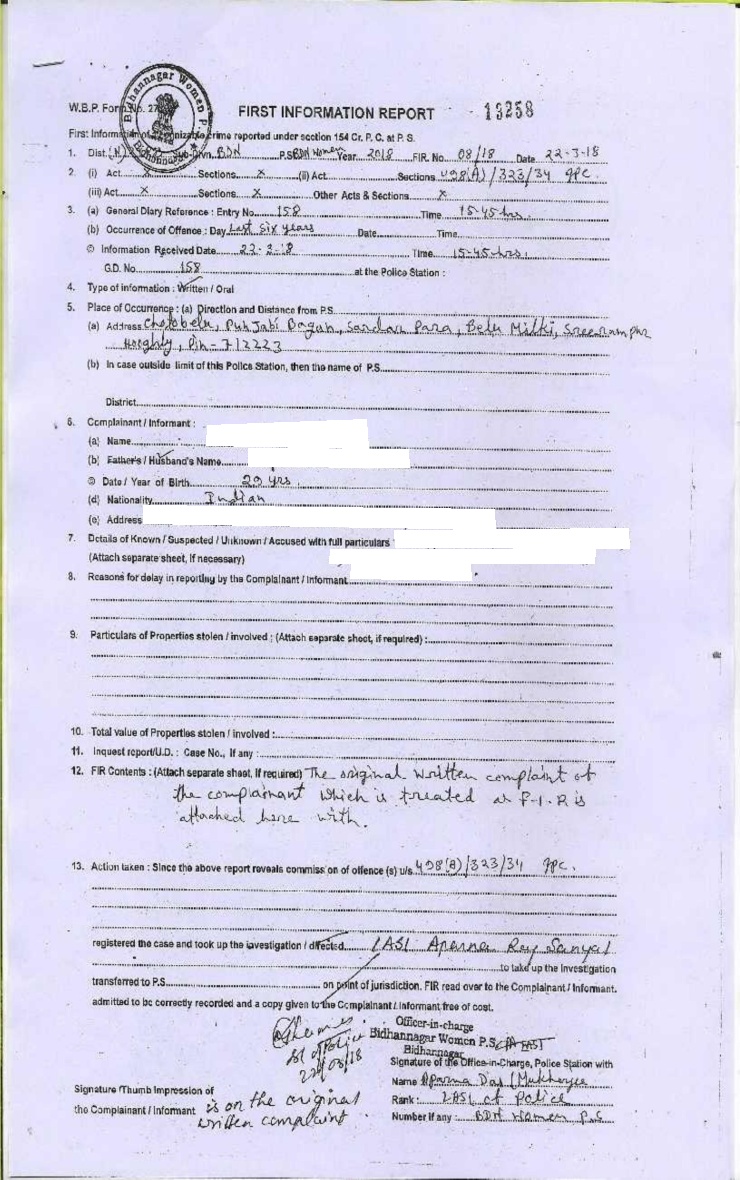 Bidhannagar Women P.S.
Bidhannagar
W.B.P. Form No. 27
FIRST INFORMATION REPORT - 13258
First Information of cognizable crime reported under section 154 Cr. P. C. at P. S.
1. Dist. (N) Sub-Divn. BDN P.S. BDN Women Year 2018 FIR. No. 08/18 Date 22-3-18
2. (i) Act X Sections X (ii) Act Sections 498(A)/323/34 IPC.
(iii) Act X Sections X Other Acts & Sections X
3. (a) General Diary Reference : Entry No. 158 Time 15-45 hrs.
(b) Occurrence of Offence : Day Last six years Date Time
© Information Received Date 22-3-18 Time 15-45-hrs.
G.D. No. 158 at the Police Station :
4. Type of information : Written / Oral
5. Place of Occurrence : (a) Direction and Distance from P.S.
(a) Address Punjabi Bagan, Sardar Para, Belu Milki, Sreerampur
Hooghly, Pin - 712223
(b) In case outside limit of this Police Station, then the name of P.S.
District
6. Complainant / Informant :
(a) Name
(b) Father's / Husband's Name
© Date / Year of Birth 29 yrs.
(d) Nationality Indian
(e) Address
7. Details of Known / Suspected / Unknown / Accused with full particulars
(Attach separate sheet, if necessary)
8. Reasons for delay in reporting by the Complainant / Informant
9. Particulars of Properties stolen / involved : (Attach separate sheet, if required) :
10. Total value of Properties stolen / involved :
11. Inquest report/U.D. : Case No., if any :
12. FIR Contents : (Attach separate sheet, if required) The original written complaint of
the complainant which is treated as F.I.R is
attached here with.
13. Action taken : Since the above report reveals commission of offence (s) u/s 498(A)/323/34 IPC.
registered the case and took up the investigation / directed LASI Aparna Ray Sanyal
to take up the investigation
transferred to P.S. on point of jurisdiction. FIR read over to the Complainant / Informant.
admitted to be correctly recorded and a copy given to the Complainant / Informant free of cost.
Officer-in-charge
Bidhannagar Women P.S.
Bidhannagar
of Police
22/03/18
Signature of the Office-in-Charge, Police Station with
Name Aparna Das (Mukherjee
Rank : LASI of Police
Number if any : BDN Women P.S
Signature /Thumb Impression of
the Complainant / Informant is on the original
written complaint.